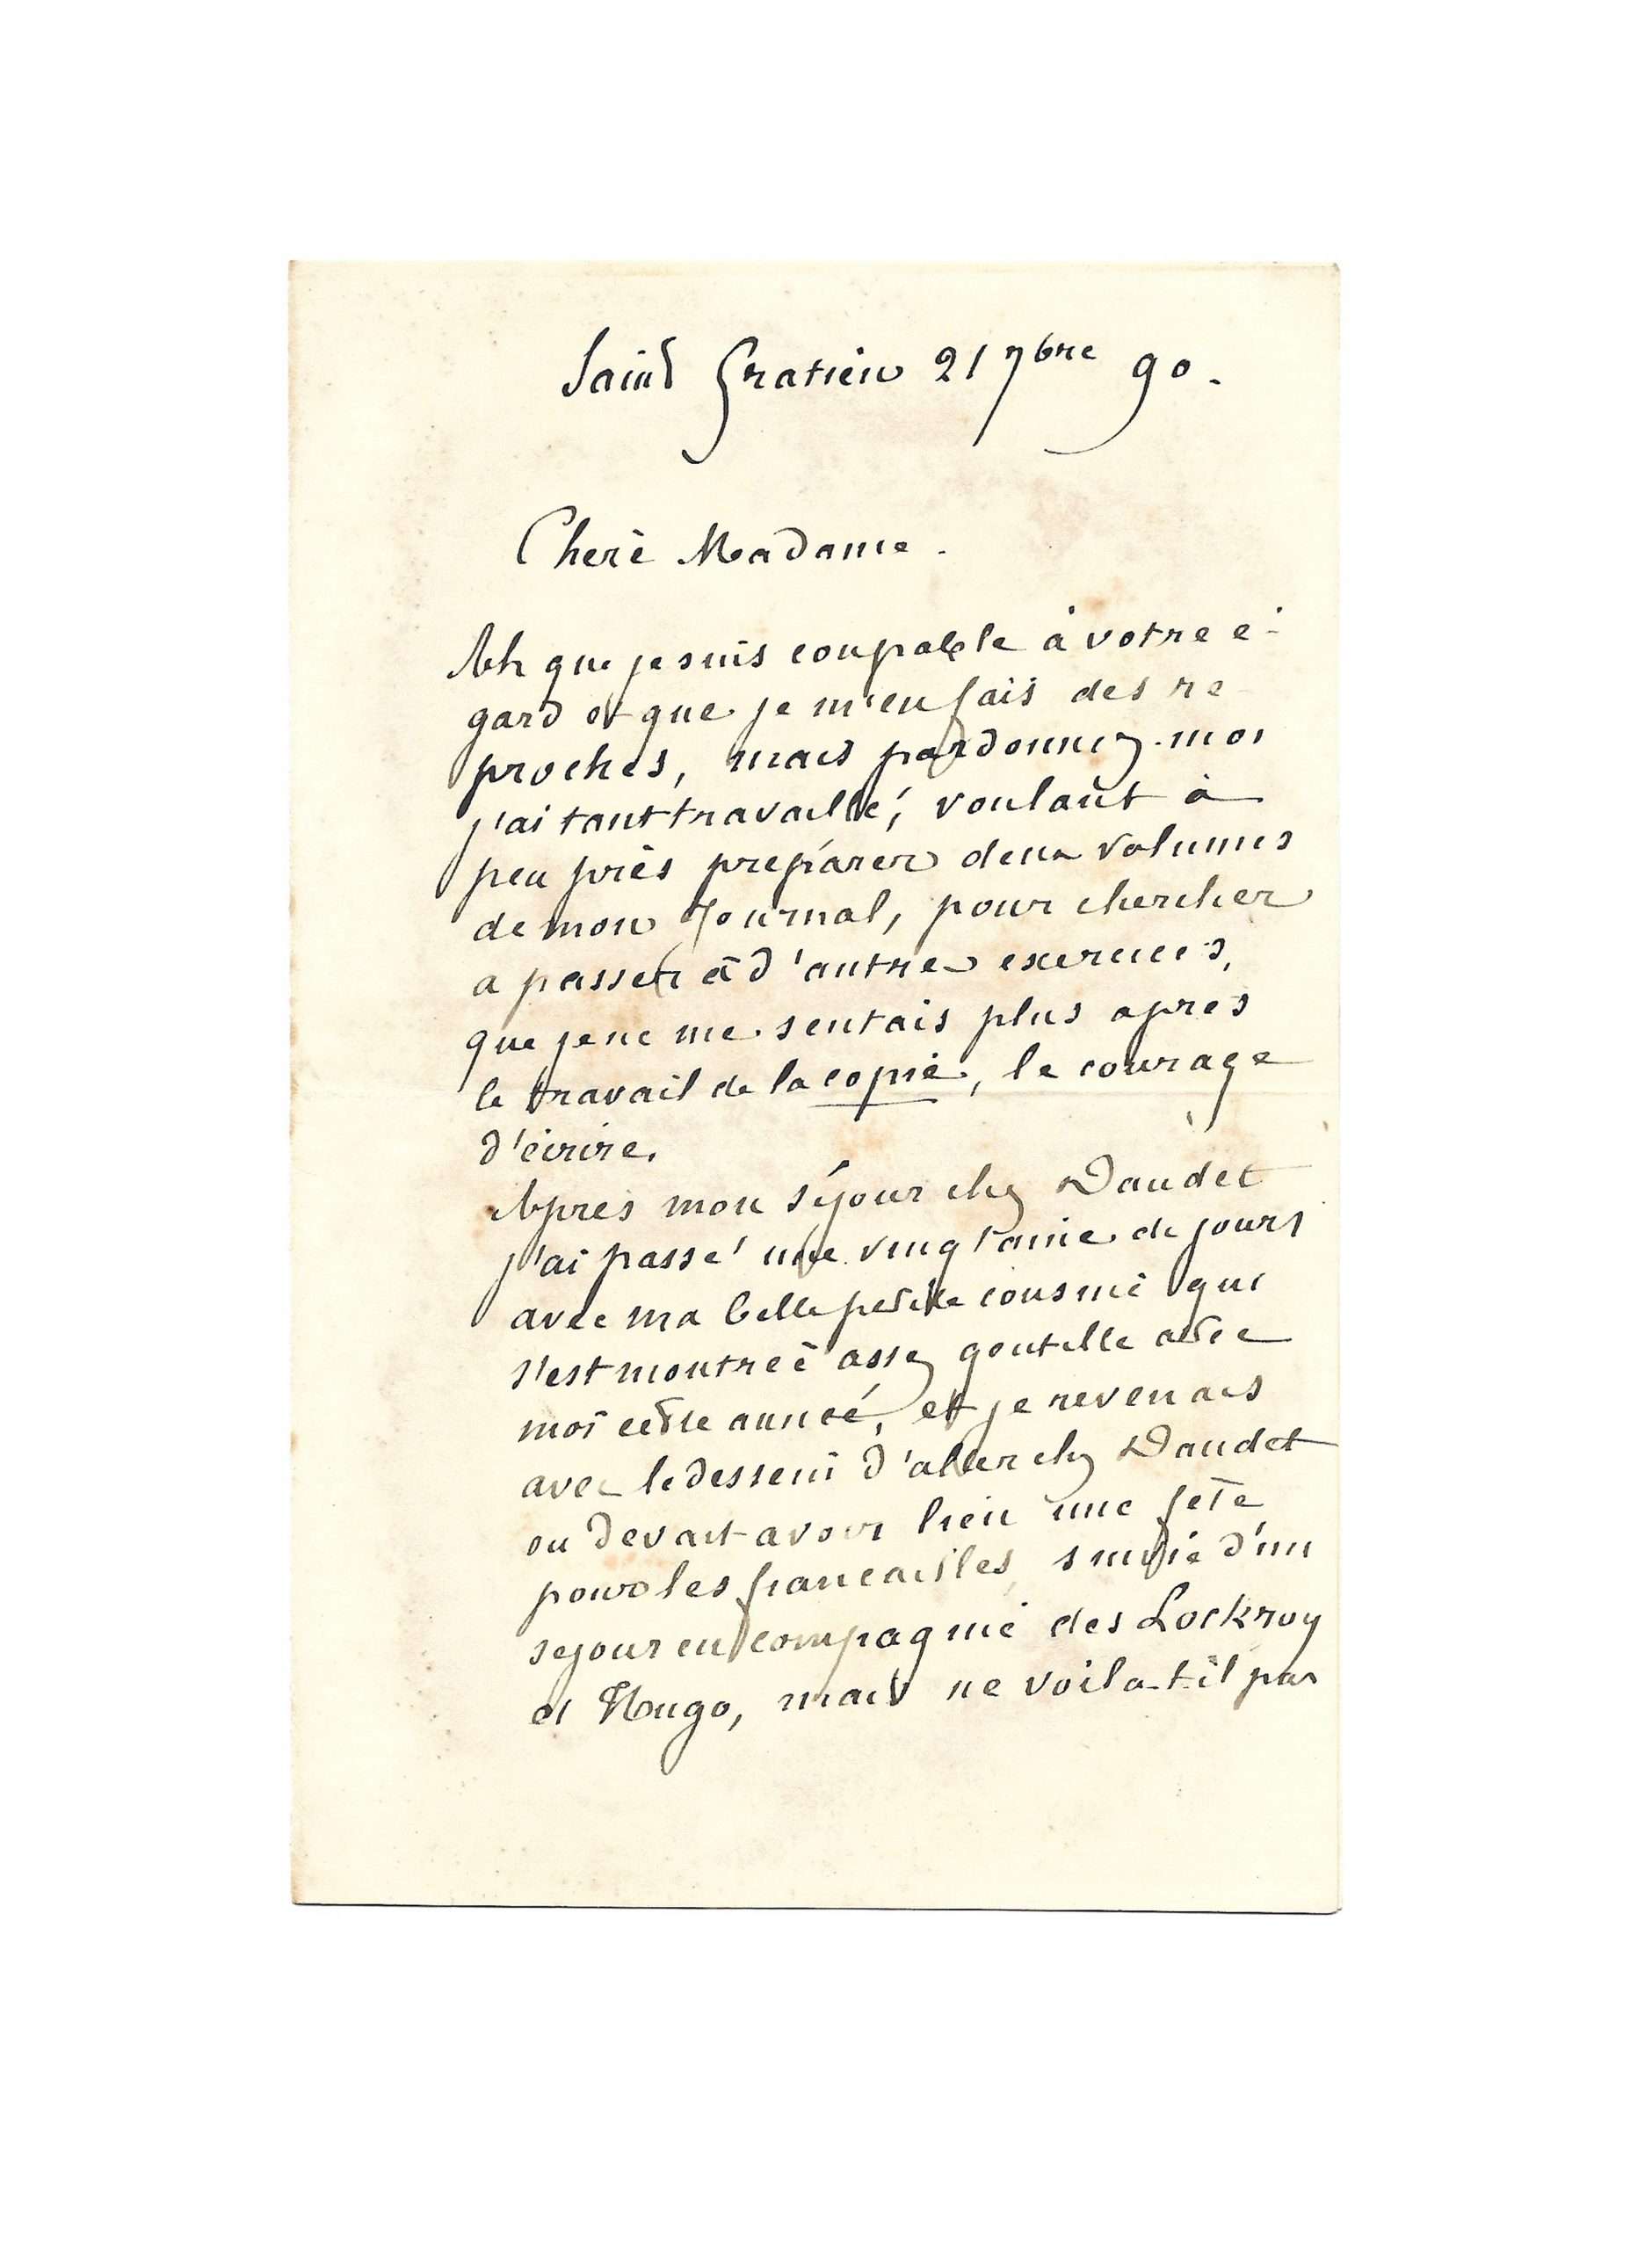 Saint Gratien 21 7bre 90.
Chère Madame.
Ah que je suis coupable à votre é-
gard et que je m'en fais des re-
proches, mais pardonnez-moi
j'ai tant travaillé, voulant à
peu près préparer deux volumes
de mon Journal, pour chercher
a passer à d'autres exercices,
que je ne me sentais plus après
le travail de la copie, le courage
d'écrire.
Après mon séjour chez Daudet
j'ai passé une vingtaine de jours
avec ma belle petite cousine qui
s'est montreé assez gentille avec
moi cette anneé, et je revenais
avec le dessein d'aller chez Daudet
ou devait avoir lieu une fête
pour les fiancailles, suivie d'un
sejour en compagnie des Lockroy
et Hugo, mais ne voila-t-il pas